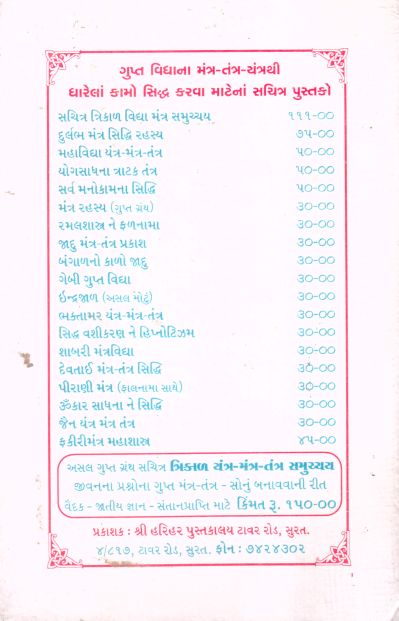 ગુપ્ત વિદ્યાના મંત્ર-તંત્ર-યંત્રથી
ધારેલાં કામો સિદ્ધ કરવા માટેનાં સચિત્ર પુસ્તકો
સચિત્ર ત્રિકાળ વિદ્યા મંત્ર સમુચ્ચય ૧૧૧-૦૦
દુર્લભ મંત્ર સિદ્ધિ રહસ્ય ૭૫-૦૦
મહાવિદ્યા યંત્ર-મંત્ર-તંત્ર ૫૦-૦૦
યોગસાધના ત્રાટક તંત્ર ૫૦-૦૦
સર્વ મનોકામના સિદ્ધિ ૫૦-૦૦
મંત્ર રહસ્ય (ગુપ્ત ગ્રંથ) ૩૦-૦૦
રમલશાસ્ત્ર ને ફળનામા ૩૦-૦૦
જાદુ મંત્ર-તંત્ર પ્રકાશ ૩૦-૦૦
બંગાળનો કાળો જાદુ ૩૦-૦૦
ગેબી ગુપ્ત વિદ્યા ૩૦-૦૦
ઇન્દ્રજાળ (અસલ મોટું) ૩૦-૦૦
ભક્તામર યંત્ર-મંત્ર-તંત્ર ૩૦-૦૦
સિદ્ધ વશીકરણ ને હિપ્નોટિઝમ ૩૦-૦૦
શાબરી મંત્રવિદ્યા ૩૦-૦૦
દેવતાઈ મંત્ર-તંત્ર સિદ્ધિ ૩૦-૦૦
પીરાણી મંત્ર (ફાલનામા સાથે) ૩૦-૦૦
ૐકાર સાધના ને સિદ્ધિ ૩૦-૦૦
જૈન યંત્ર મંત્ર તંત્ર ૩૦-૦૦
ફકીરીમંત્ર મહાશાસ્ત્ર ૪૫-૦૦
અસલ ગુપ્ત ગ્રંથ સચિત્ર ત્રિકાળ યંત્ર-મંત્ર-તંત્ર સમુચ્ચય
જીવનના પ્રશ્નોના ગુપ્ત મંત્ર-તંત્ર - સોનું બનાવવાની રીત
વૈદક - જાતીય જ્ઞાન - સંતાનપ્રાપ્તિ માટે કિંમત રૂ. ૧૫૦-૦૦
પ્રકાશક : શ્રી હરિહર પુસ્તકાલય ટાવર રોડ, સુરત.
૪/૮૧૭, ટાવર રોડ, સુરત. ફોન : ૭૪૨૪૩૦૨